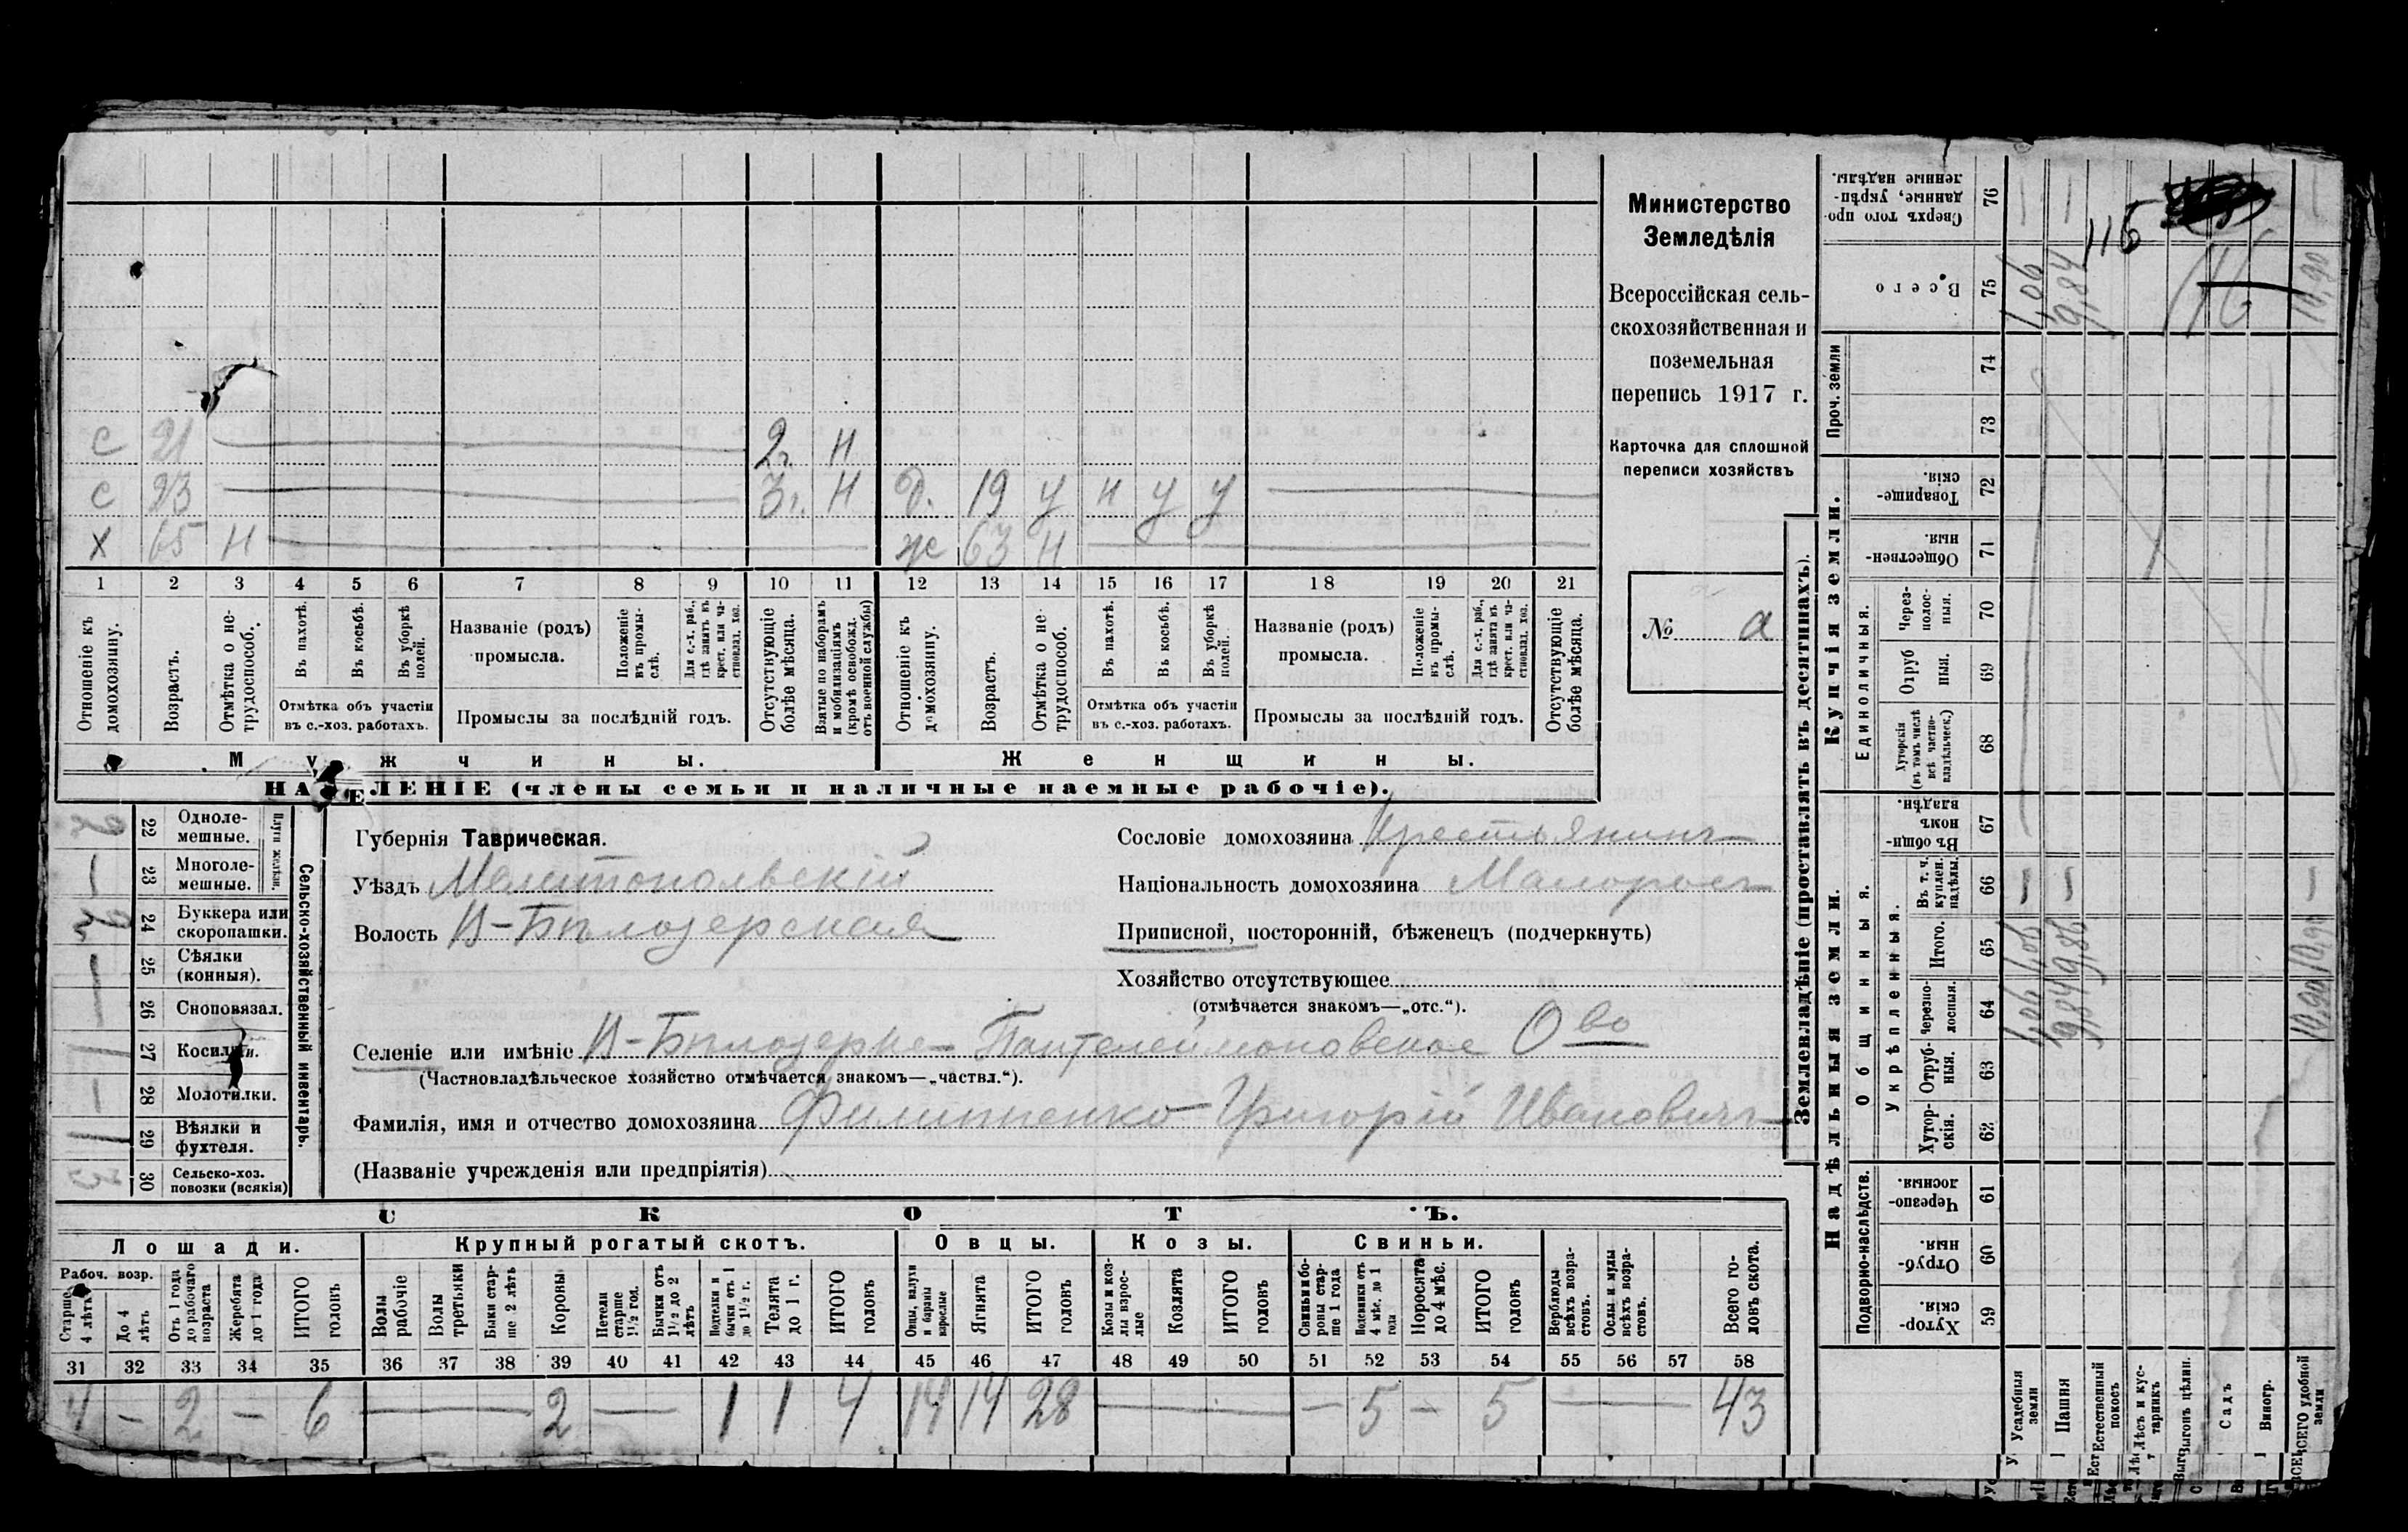 Министерство
Земледѣлія
Всероссійская сель-
скохозяйственная и
поземельная
перепись 1917 г.
Карточка для сплошной
переписи хозяйствъ
№ а
с 21 2г. Н
с 23 3г. Н д. 19 у н у у
х 65 Н ж 63 Н
1 2 3 4 5 6 7 8 9 10 11 12 13 14 15 16 17 18 19 20 21
Отношеніе къ домохозяину.
Возрастъ.
Отмѣтка о не-трудоспособ.
Въ пахотѣ.
Въ косьбѣ.
Въ уборкѣ полей.
Отмѣтка объ участіи
въ с.-хоз. работахъ.
Названіе (родъ)
промысла.
Положеніе въ промы-слѣ.
Для с.-х. раб., гдѣ занятъ въ крест. или ча-стновлад. хоз.
Промыслы за послѣдній годъ.
Отсутствующіе болѣе мѣсяца.
Взятые по наборамъ и мобилизаціямъ (кромѣ освобожд. отъ военной службы)
Отношеніе къ домохозяину.
Возрастъ.
Отмѣтка о не-трудоспособ.
Въ пахотѣ.
Въ косьбѣ.
Въ уборкѣ полей.
Отмѣтка объ участіи
въ с.-хоз. работахъ.
Названіе (родъ)
промысла.
Положеніе въ промы-слѣ.
Для с.-х. раб., гдѣ занята въ крест. или ча-стновлад. хоз.
Промыслы за послѣдній годъ.
Отсутствующіе болѣе мѣсяца.
Мужчины. Женщины.
НАСЕЛЕНІЕ (члены семьи и наличные наемные рабочіе).
Сельско-хозяйственный инвентарь.
Плуги желѣзн.
22 Одноле-
мешные.
— 23 Многоле-
мешные.
24 Буккера или
скоропашки.
— 25 Сѣялки
(конныя).
— 26 Сноповязал.
1 27 Косилки.
— 28 Молотилки.
1 29 Вѣялки и
фухтеля.
30 Сельско-хоз.
повозки (всякія)
Губернія Таврическая.
Уѣздъ Мелитопольскій
Волость В-Бѣлозерская
Сословіе домохозяина Крестьянинъ
Національность домохозяина Малороссъ
Приписной, посторонній, бѣженецъ (подчеркнуть)
Хозяйство отсутствующее
(отмѣчается знакомъ—„отс.“).
Селеніе или имѣніе В-Бѣлозерка Пантелеймоновское О-во
(Частновладѣльческое хозяйство отмѣчается знакомъ—„частвл.“).
Фамилія, имя и отчество домохозяина Филиппенко Григорій Ивановичъ
(Названіе учрежденія или предпріятія)
СКОТЪ.
Лошади. Крупный рогатый скотъ. Овцы. Козы. Свиньи.
Рабоч. возр.
Старше 4 лѣтъ
До 4 лѣтъ
Отъ 1 года до рабочаго возраста
Жеребята до 1 года
ИТОГО головъ
Волы рабочіе
Волы третьяки
Быки стар-ше 2 лѣтъ
Коровы
Нетели старше 1½ год.
Бычки отъ 1½ до 2 лѣтъ
Подтелки и бычки отъ 1 до 1½ г.
Телята до 1 г.
ИТОГО головъ
Овцы, валухи и бараны взрослые
Ягнята
ИТОГО головъ
Козы и коз-лы взрос-лые
Козлята
ИТОГО головъ
Свиньи и бо-ровы стар-ше 1 года
Подсвинки отъ 4 мѣс. до 1 года
Поросята до 4 мѣс.
ИТОГО головъ
Верблюды всѣхъ возра-стовъ.
Ослы и мулы всѣхъ возра-стовъ.
Всего го-ловъ скота.
31 32 33 34 35 36 37 38 39 40 41 42 43 44 45 46 47 48 49 50 51 52 53 54 55 56 57 58
4 — 2 — 6 — 2 — 1 1 4 14 14 28 — — 5 — 5 — 43
Землевладѣніе (проставлять въ десятинахъ).
Надѣльныя земли.
Купчія земли.
Проч. земли
Подворно-наслѣдств.
Общинныя.
Укрѣпленныя.
Единоличныя.
Сверхъ того про-данные, укрѣп-ленные надѣлы. 76
Всего 75
74
73
Товарище-скія. 72
Обществен-ныя. 71
Через-полос-ныя. 70
Отруб ныя. 69
Хуторскія (въ томъ числѣ всѣ частно-владѣльческ.) 68
Въ общин-номъ владѣн. 67
Въ т. ч. куплен. надѣлы. 66
Итого. 65
Черезпо-лосныя. 64
Отруб-ныя. 63
Хутор-скія. 62
Черезпо-лосныя. 61
Отруб-ныя. 60
Хутор-скія. 59
Усадебныя земли
Пашня
Естественный покосъ
Лѣсъ и кус-тарникъ
Выгонъ цѣлин.
Садъ
Виногр.
ВСЕГО удобной земли
1,06 1,06 1,06
9,84 9,86 9,84
10,90 10,90 10,90
116
116